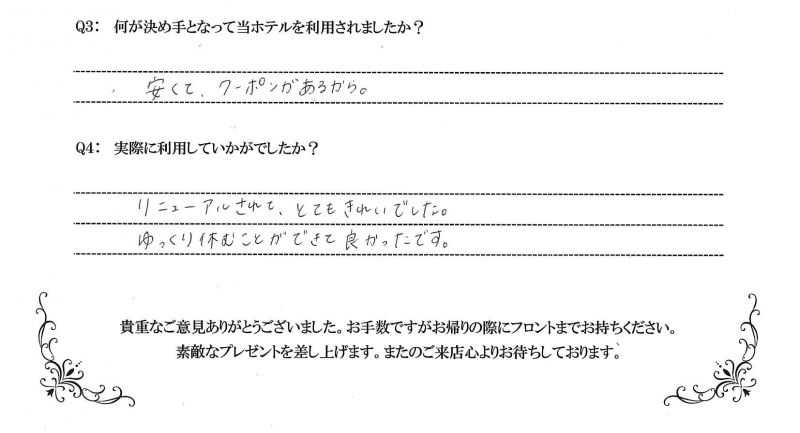 Q3: 何が決め手となって当ホテルを利用されましたか？
安くて、クーポンがあるから。
Q4: 実際に利用していかがでしたか？
リニューアルされて、とてもきれいでした。
ゆっくり休むことができて良かったです。
貴重なご意見ありがとうございました。お手数ですがお帰りの際にフロントまでお持ちください。
素敵なプレゼントを差し上げます。またのご来店心よりお待ちしております。